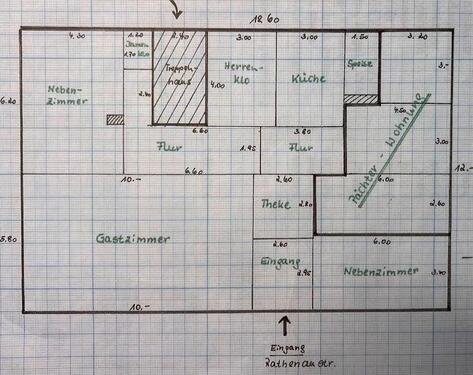 18.60
4.30
1.20
2.40
3.00
3.00
1.50
3.20
Damen
1.70 klo
Treppen-
haus
Herren-
klo
Küche
Speise
3.-
Neben-
zimmer
6.20
2.40
4.00
4.50
3.00
6.60
3.80
Flur
1.95
Flur
Pächter - Wohnung
12.-
10.-
6.60
2.60
6.00
Theke
2.80
2.60
5.80
Gastzimmer
2.60
6.00
Eingang
2.95
Nebenzimmer
3.40
10.-
Eingang
Rathenaustr.